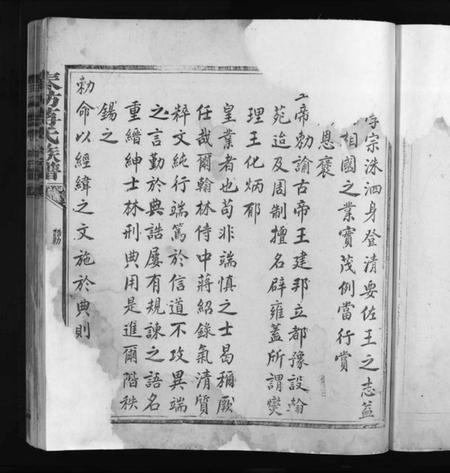 宗洙泗身登清要佐王之志蓋
相國之業實茂例當行賞
恩褒
帝勅諭古帝王建邦立都豫設翰
苑迨及周制擅名辟雍蓋所謂燮
理王化炳郁
皇業者也苟非端慎之士曷稱厥
任哉爾翰林侍中蔣紹錄氣清質
粹文純行端篤於信道不攻異端
之言勤於典誥屢有規諫之語名
重縉紳士林刑典用是進爾階秩
錫之
勅命以經緯之文施於典則
氏族譜